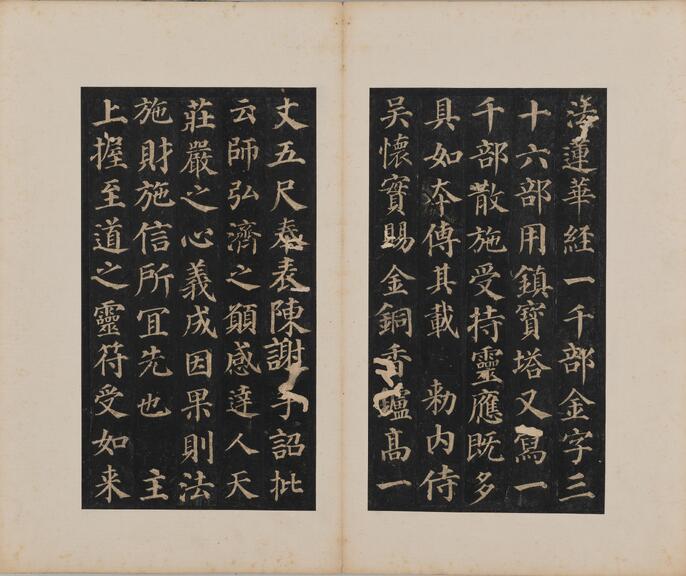 法蓮華經一千部金字三
十六部用鎮寶塔又寫一
千部散施受持靈應既多
具如本傳其載　勅內侍
吴懷實賜金銅香爐高一
丈五尺奉表陳謝手詔批
云師弘濟之願感達人天
莊嚴之心義成因果則法
施財施信所宜先也　主
上握至道之靈符受如来